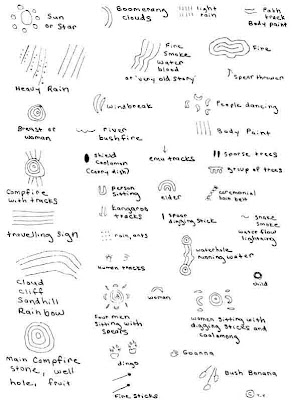 Sun
or Star
Boomerang
clouds
light
rain
Path
track
Body paint
Heavy Rain
Fire
Smoke
Water
blood
or 'very old story'
Fire
Spear thrower
windbreak
People dancing
Breast or
woman
river
bushfire
Body Paint
shield
Coolamon
(Carry dish)
emu tracks
sparse trees
group of trees
Campfire
with tracks
person
sitting
elder
ceremonial
hair belt
kangaroo
tracks
spear
digging stick
snake
smoke
water flow
lightning
travelling sign
rain, ants
waterhole
running water
human tracks
child
Cloud
cliff
Sandhill
Rainbow
woman
Four men
Sitting with
Spears
women Sitting with
digging Sticks and
coolamons
main Campfire
stone, well
hole, fruit
dingo
Goanna
Bush Banana
Fire Sticks